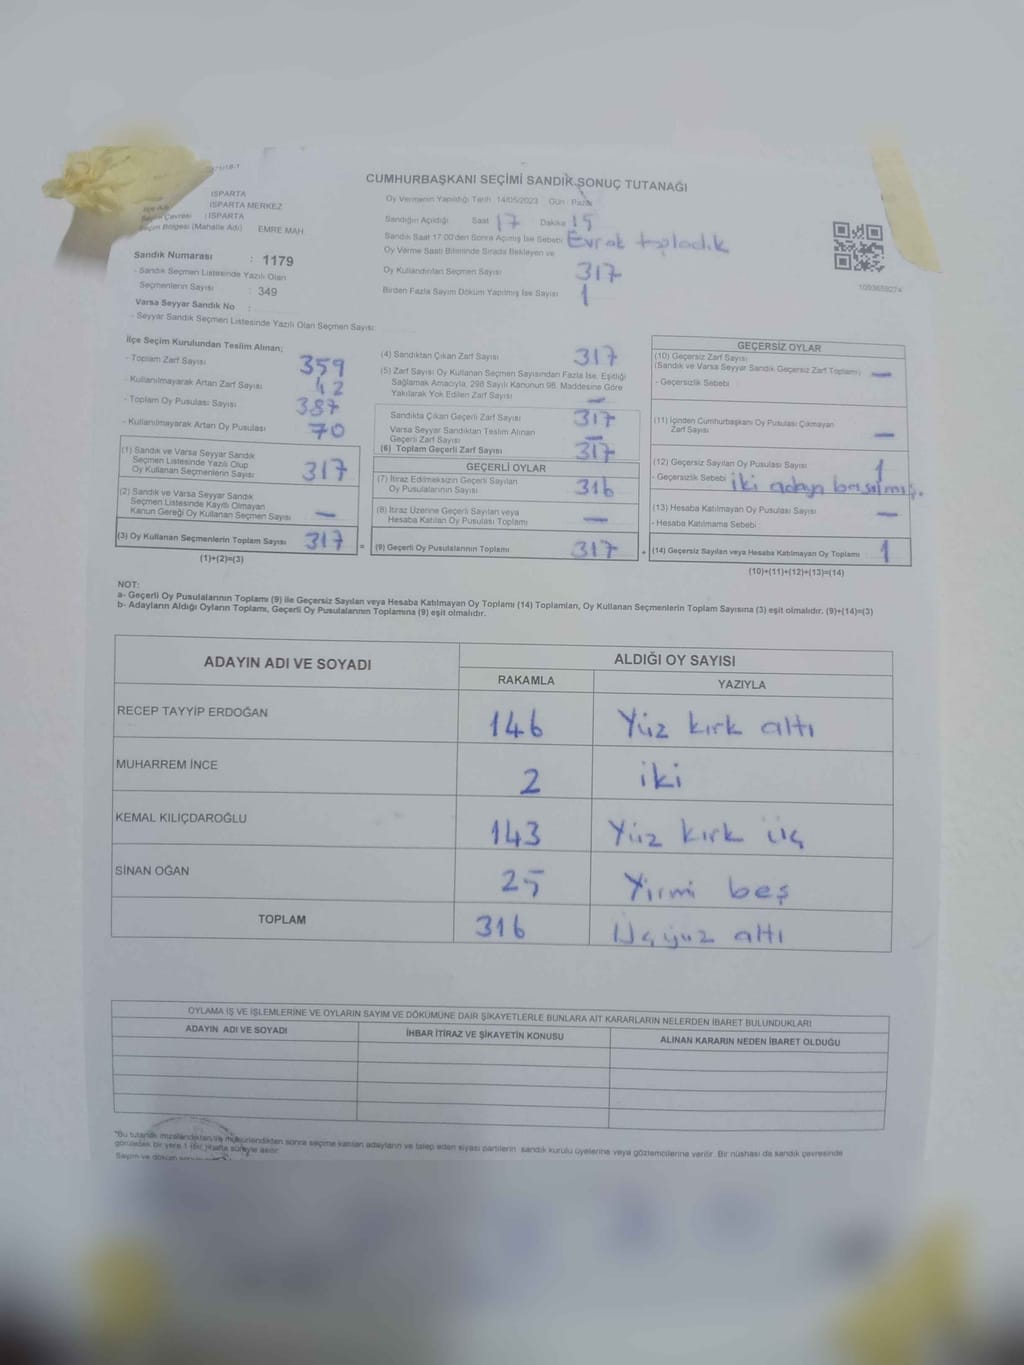 CUMHURBAŞKANI SEÇİMİ SANDIK SONUÇ TUTANAĞI
ISPARTA
ISPARTA MERKEZ
Seçim Çevresi : ISPARTA
Seçim Bölgesi (Mahalle Adı) EMRE MAH.
Sandık Numarası : 1179
- Sandık Seçmen Listesinde Yazılı Olan
Seçmenlerin Sayısı : 349
Varsa Seyyar Sandık No :
- Seyyar Sandık Seçmen Listesinde Yazılı Olan Seçmen Sayısı:
Oy Vermenin Yapıldığı Tarih 14/05/2023 Gün : Pazar
Sandığın Açıldığı Saat 17 Dakika 15
Sandık Saat 17:00'den Sonra Açılmış İse Sebebi Evrak topladık
Oy Verme Saati Bitiminde Sırada Bekleyen ve
Oy Kullandırılan Seçmen Sayısı 317
Birden Fazla Sayım Döküm Yapılmış İse Sayısı 1
1093659274
İlçe Seçim Kurulundan Teslim Alınan;
- Toplam Zarf Sayısı 359
- Kullanılmayarak Artan Zarf Sayısı 42
- Toplam Oy Pusulası Sayısı 387
- Kullanılmayarak Artan Oy Pusulası 70
(1) Sandık ve Varsa Seyyar Sandık
Seçmen Listesinde Yazılı Olup
Oy Kullanan Seçmenlerin Sayısı 317
(2) Sandık ve Varsa Seyyar Sandık
Seçmen Listesinde Kayıtlı Olmayan
Kanun Gereği Oy Kullanan Seçmen Sayısı —
(3) Oy Kullanan Seçmenlerin Toplam Sayısı 317
(1)+(2)=(3)
(4) Sandıktan Çıkan Zarf Sayısı 317
(5) Zarf Sayısı Oy Kullanan Seçmen Sayısından Fazla İse, Eşitliği
Sağlamak Amacıyla, 298 Sayılı Kanunun 98. Maddesine Göre
Yakılarak Yok Edilen Zarf Sayısı —
Sandıkta Çıkan Geçerli Zarf Sayısı 317
Varsa Seyyar Sandıktan Teslim Alınan
Geçerli Zarf Sayısı —
(6) Toplam Geçerli Zarf Sayısı 317
GEÇERLİ OYLAR
(7) İtiraz Edilmeksizin Geçerli Sayılan
Oy Pusulalarının Sayısı 316
(8) İtiraz Üzerine Geçerli Sayılan veya
Hesaba Katılan Oy Pusulası Toplamı —
= (9) Geçerli Oy Pusulalarının Toplamı 317
GEÇERSİZ OYLAR
(10) Geçersiz Zarf Sayısı
(Sandık ve Varsa Seyyar Sandık Geçersiz Zarf Toplamı) —
- Geçersizlik Sebebi
(11) İçinden Cumhurbaşkanı Oy Pusulası Çıkmayan
Zarf Sayısı —
(12) Geçersiz Sayılan Oy Pusulası Sayısı 1
- Geçersizlik Sebebi iki adaya basılmış.
(13) Hesaba Katılmayan Oy Pusulası Sayısı —
- Hesaba Katılmama Sebebi
+ (14) Geçersiz Sayılan veya Hesaba Katılmayan Oy Toplamı 1
(10)+(11)+(12)+(13)=(14)
NOT:
a- Geçerli Oy Pusulalarının Toplamı (9) ile Geçersiz Sayılan veya Hesaba Katılmayan Oy Toplamı (14) Toplamları, Oy Kullanan Seçmenlerin Toplam Sayısına (3) eşit olmalıdır. (9)+(14)=(3)
b- Adayların Aldığı Oyların Toplamı, Geçerli Oy Pusulalarının Toplamına (9) eşit olmalıdır.
ADAYIN ADI VE SOYADI ALDIĞI OY SAYISI
RAKAMLA YAZIYLA
RECEP TAYYİP ERDOĞAN 146 Yüz kırk altı
MUHARREM İNCE 2 iki
KEMAL KILIÇDAROĞLU 143 Yüz kırk üç
SİNAN OĞAN 25 Yirmi beş
TOPLAM 316 Üçyüz altı
OYLAMA İŞ VE İŞLEMLERİNE VE OYLARIN SAYIM VE DÖKÜMÜNE DAİR ŞİKAYETLERLE BUNLARA AİT KARARLARIN NELERDEN İBARET BULUNDUKLARI
ADAYIN ADI VE SOYADI İHBAR İTİRAZ VE ŞİKAYETİN KONUSU ALINAN KARARIN NEDEN İBARET OLDUĞU
*Bu tutanak imzalandıktan ve mühürlendikten sonra seçime katılan adayların ve talep eden siyasi partilerin sandık kurulu üyelerine veya gözlemcilerine verilir. Bir nüshası da sandık çevresinde
görülebilecek bir yere 1 (Bir) hafta süreyle asılır.
Sayım ve döküm